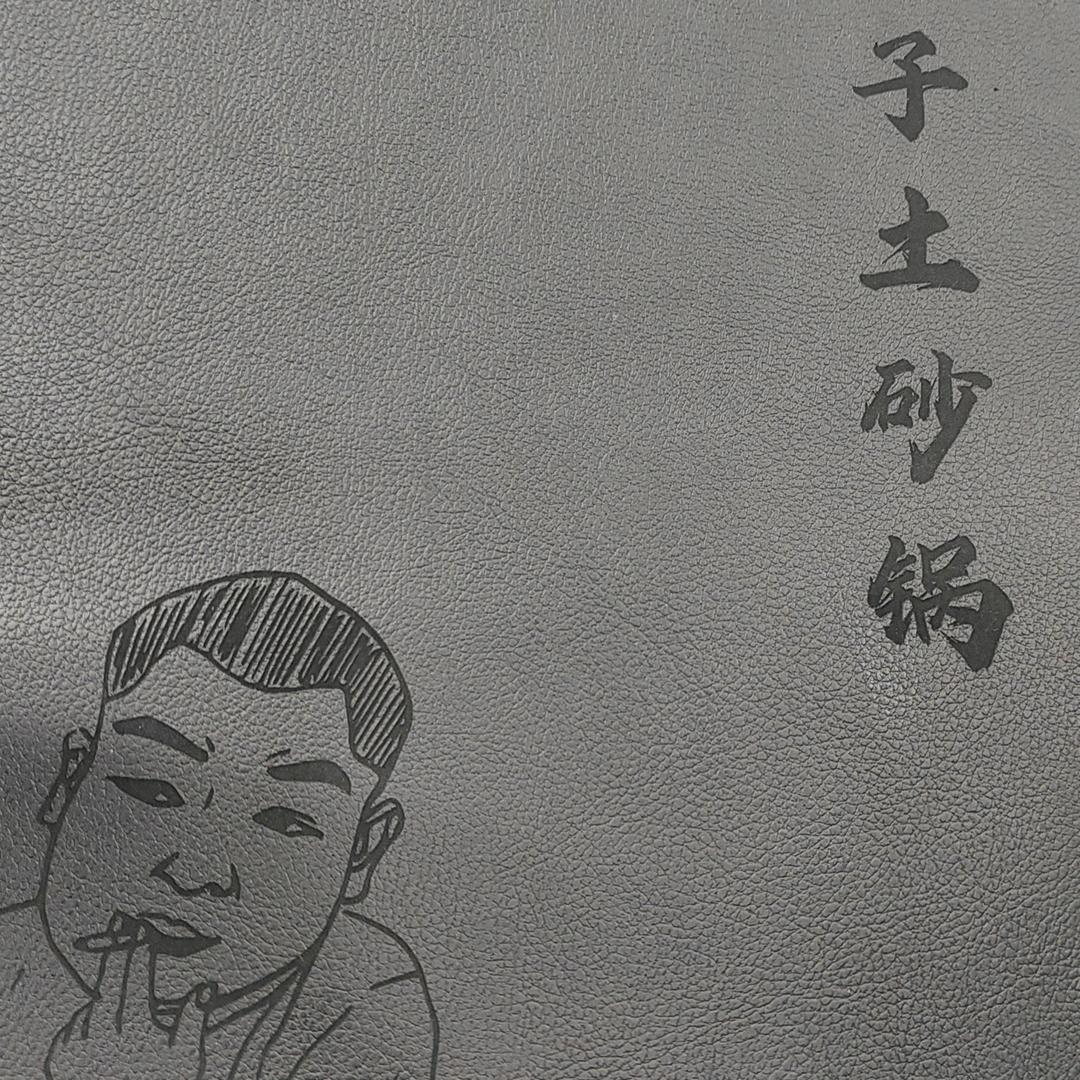 子土砂锅